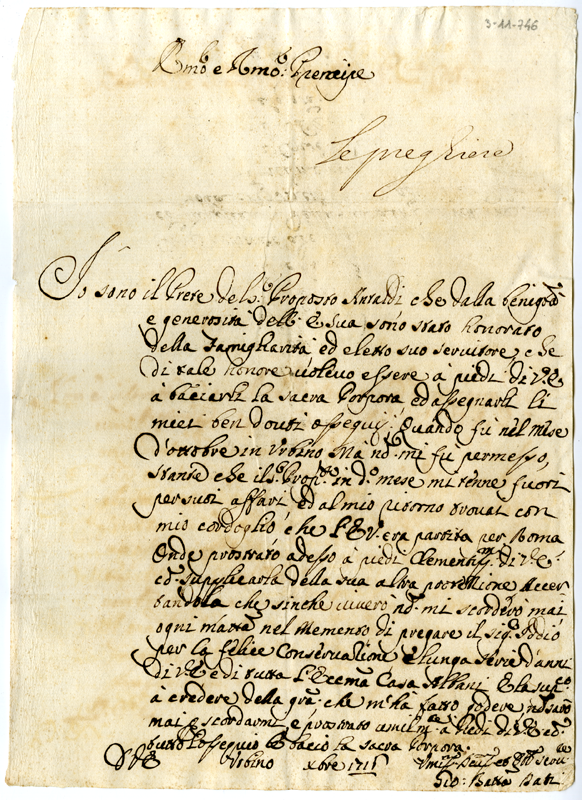 3-11-746
Em.º e R.mo: Prencipe
Le preghiere
Io sono il Prete del s.r Proposto Antaldi che dalla benignità
e generosità dell' E Sua sono stato honorato
della famigliarità ed eletto suo servitore, che
di tale honore volevo essere à piedi di V.E
à baciarli la sacra Porpora ed assegnarli li
miei ben douti ossequij, Quando fù nel mese
d'ottobre in Urbino Ma nõ mi fù permesso,
stante che il s.r Prop.to in d.º mese mi tenne fuori
per suoi affari ed al mio ritorno trovai con
mio cordoglio che l'E V. era partita per Roma
Onde prostrato adesso à piedi Clementiss.mi di V.E.
cõ supplicarla della sua alta protettione Accer
tandola che sinche vivero nõ mi scorderò mai
ogni matta nel Memento di pregare il sig.r Iddio
per la felice Conservatione e lunga serie d'anni
di V.E e di tutta l'Ecc.ma Casa Albani E la supp.co
à credere della grã che m'hà fatto godere nõ sarò
mai e scordarmi e prostrato umilm.te à Piedi di V.E cõ
tutto l'ossequio le bacio la sacra Porpora.
D V E Urbino xbre 1711
Gio: Batta